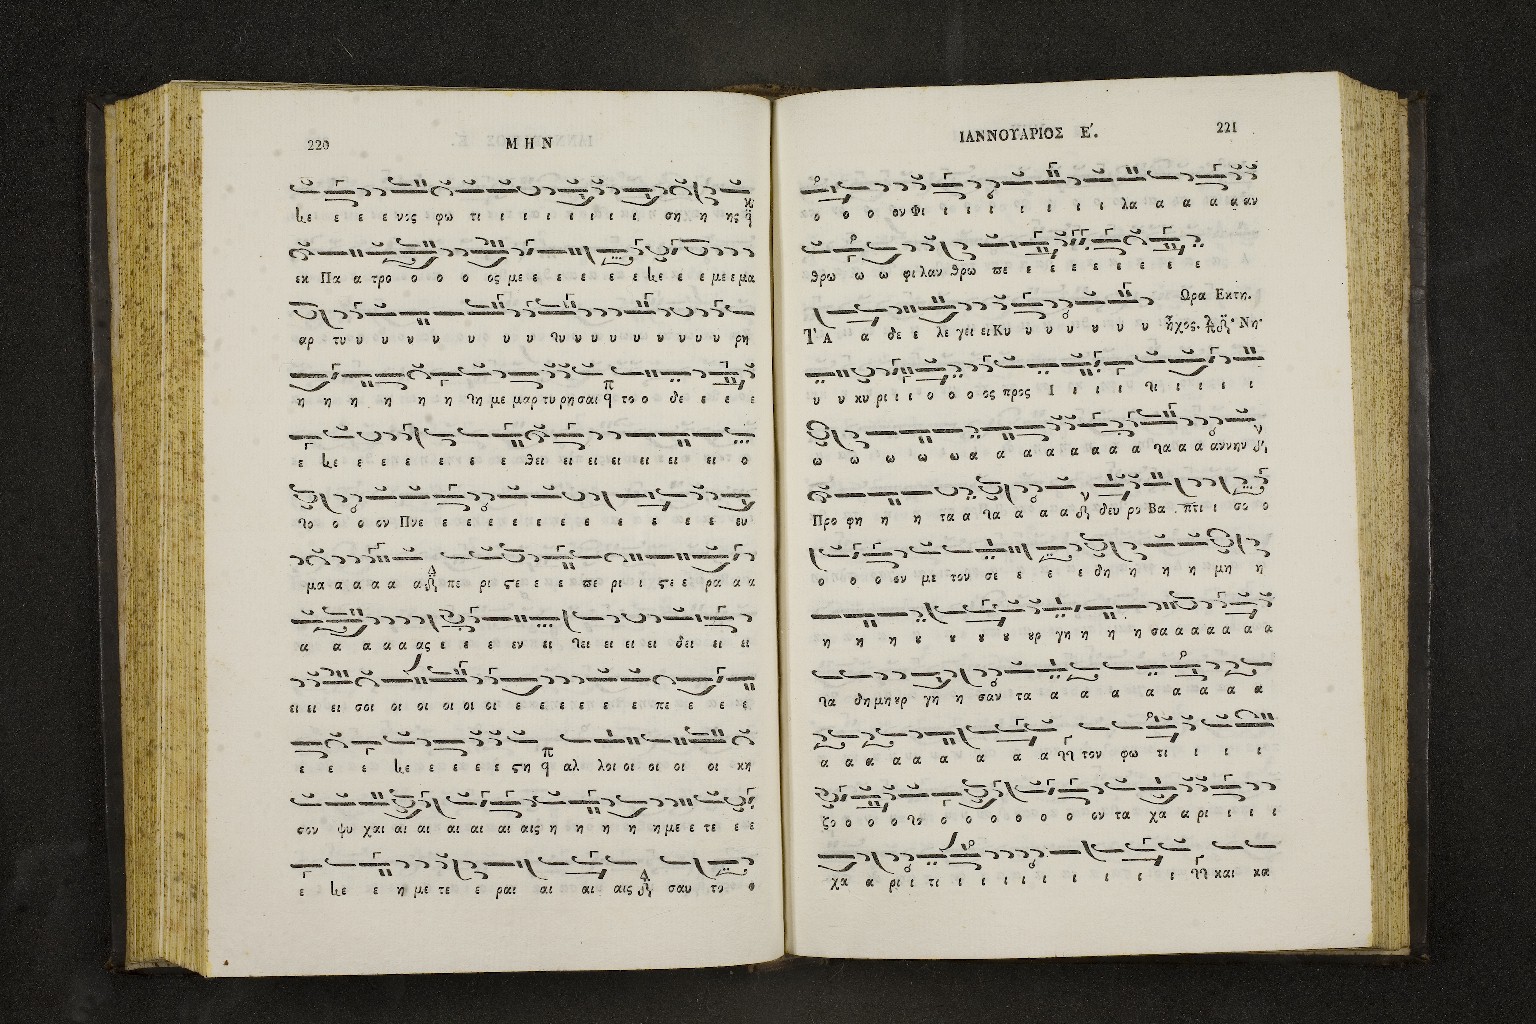 220 ΜΗΝ
κε ε ε ε νος φω τι ι ι ι ι ι ι ι ση η ης
εκ Πα α τρο ο ο ο ος με ε ε ε ε ε κε ε ε με ε μα
αρ τυ υ υ υ υ υ υ υ τυ υ υ υ υ υ υ υ υ υ ρη
η η η η η η τη με μαρ τυ ρη σαι το ο δε ε ε ε
ε κε ε ε ε ε ε ε ε θει ει ει ει ει ει ει ει ο
το ο ο ον Πνε ε ε ε ε ε ε ε ε ε ε ε ε ευ
μα α α α α α πε ρι στε ε ε ε πε ρι ι στε ε ρα α α
α α α α α ας ε ε ε εν ει τει ει ει ει δει ει ει
ει ει ει σοι οι οι οι οι οι οι ε ε ε ε ε ε πε ε ε ε
ε ε ε κε ε ε ε ε ε στη αλ λοι οι οι οι οι οι κη
σον ψυ χαι αι αι αι αι αι αι αις η η η η η με ε τε ε ε
ε κε ε η με τε ε ραι αι αι αις σαυ το ο
ΙΑΝΝΟΥΑΡΙΟΣ Ε΄. 221
ο ο ο ον Φι ι ι ι ι ι ι ι ι λα α α α α αν
θρω ω ω φι λαν θρω πε ε ε ε ε ε ε ε ε
Ωρα Εκτη.
ΤΑ α δε ε λε γει ει Κυ υ υ υ υ υ υ υ ἦχος. Νη
υ υ κυ ρι ι ι ο ο ο ος προς Ι ι ι ι τι ι ι ι ι
ω ω ω ω ω α α α α α α α α τα α α α ννην
Προ φη η η τα α τα α α α δευ ρο Βα πτι ι σο ο
ο ο ο ον με τον σε ε ε ε δη η η η μη η
η η η ȣ ȣ ȣ ȣ ȣρ γη η η η σα α α α α α α
τα δη μȣρ γη η σαν τα α α α α α α α α α
α α α α α α α α α τον φω τι ι ι ι ι
ζο ο ο ο το ο ο ο ο ο ο ον τα χα α ρι ι ι ι
χα α ρι ι τι ι ι ι ι ι ι ι ι ι ι και κα